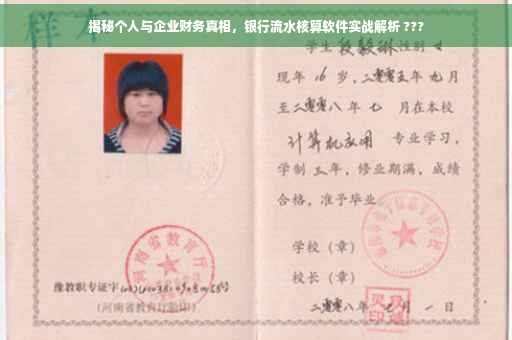 揭秘个人与企业财务真相，银行流水核算软件实战解析 ???
样本
学生段毅琳性别女
现年16岁，二零零五年九月
至二零零八年七月在本校
计算机应用 专业学习，
学制三年，修业期满，成绩
合格，准予毕业。
学校（章）
校长（章）
二零零八年七月一日
河南省教育厅
豫教职专证字
（河南省教育厅验印）